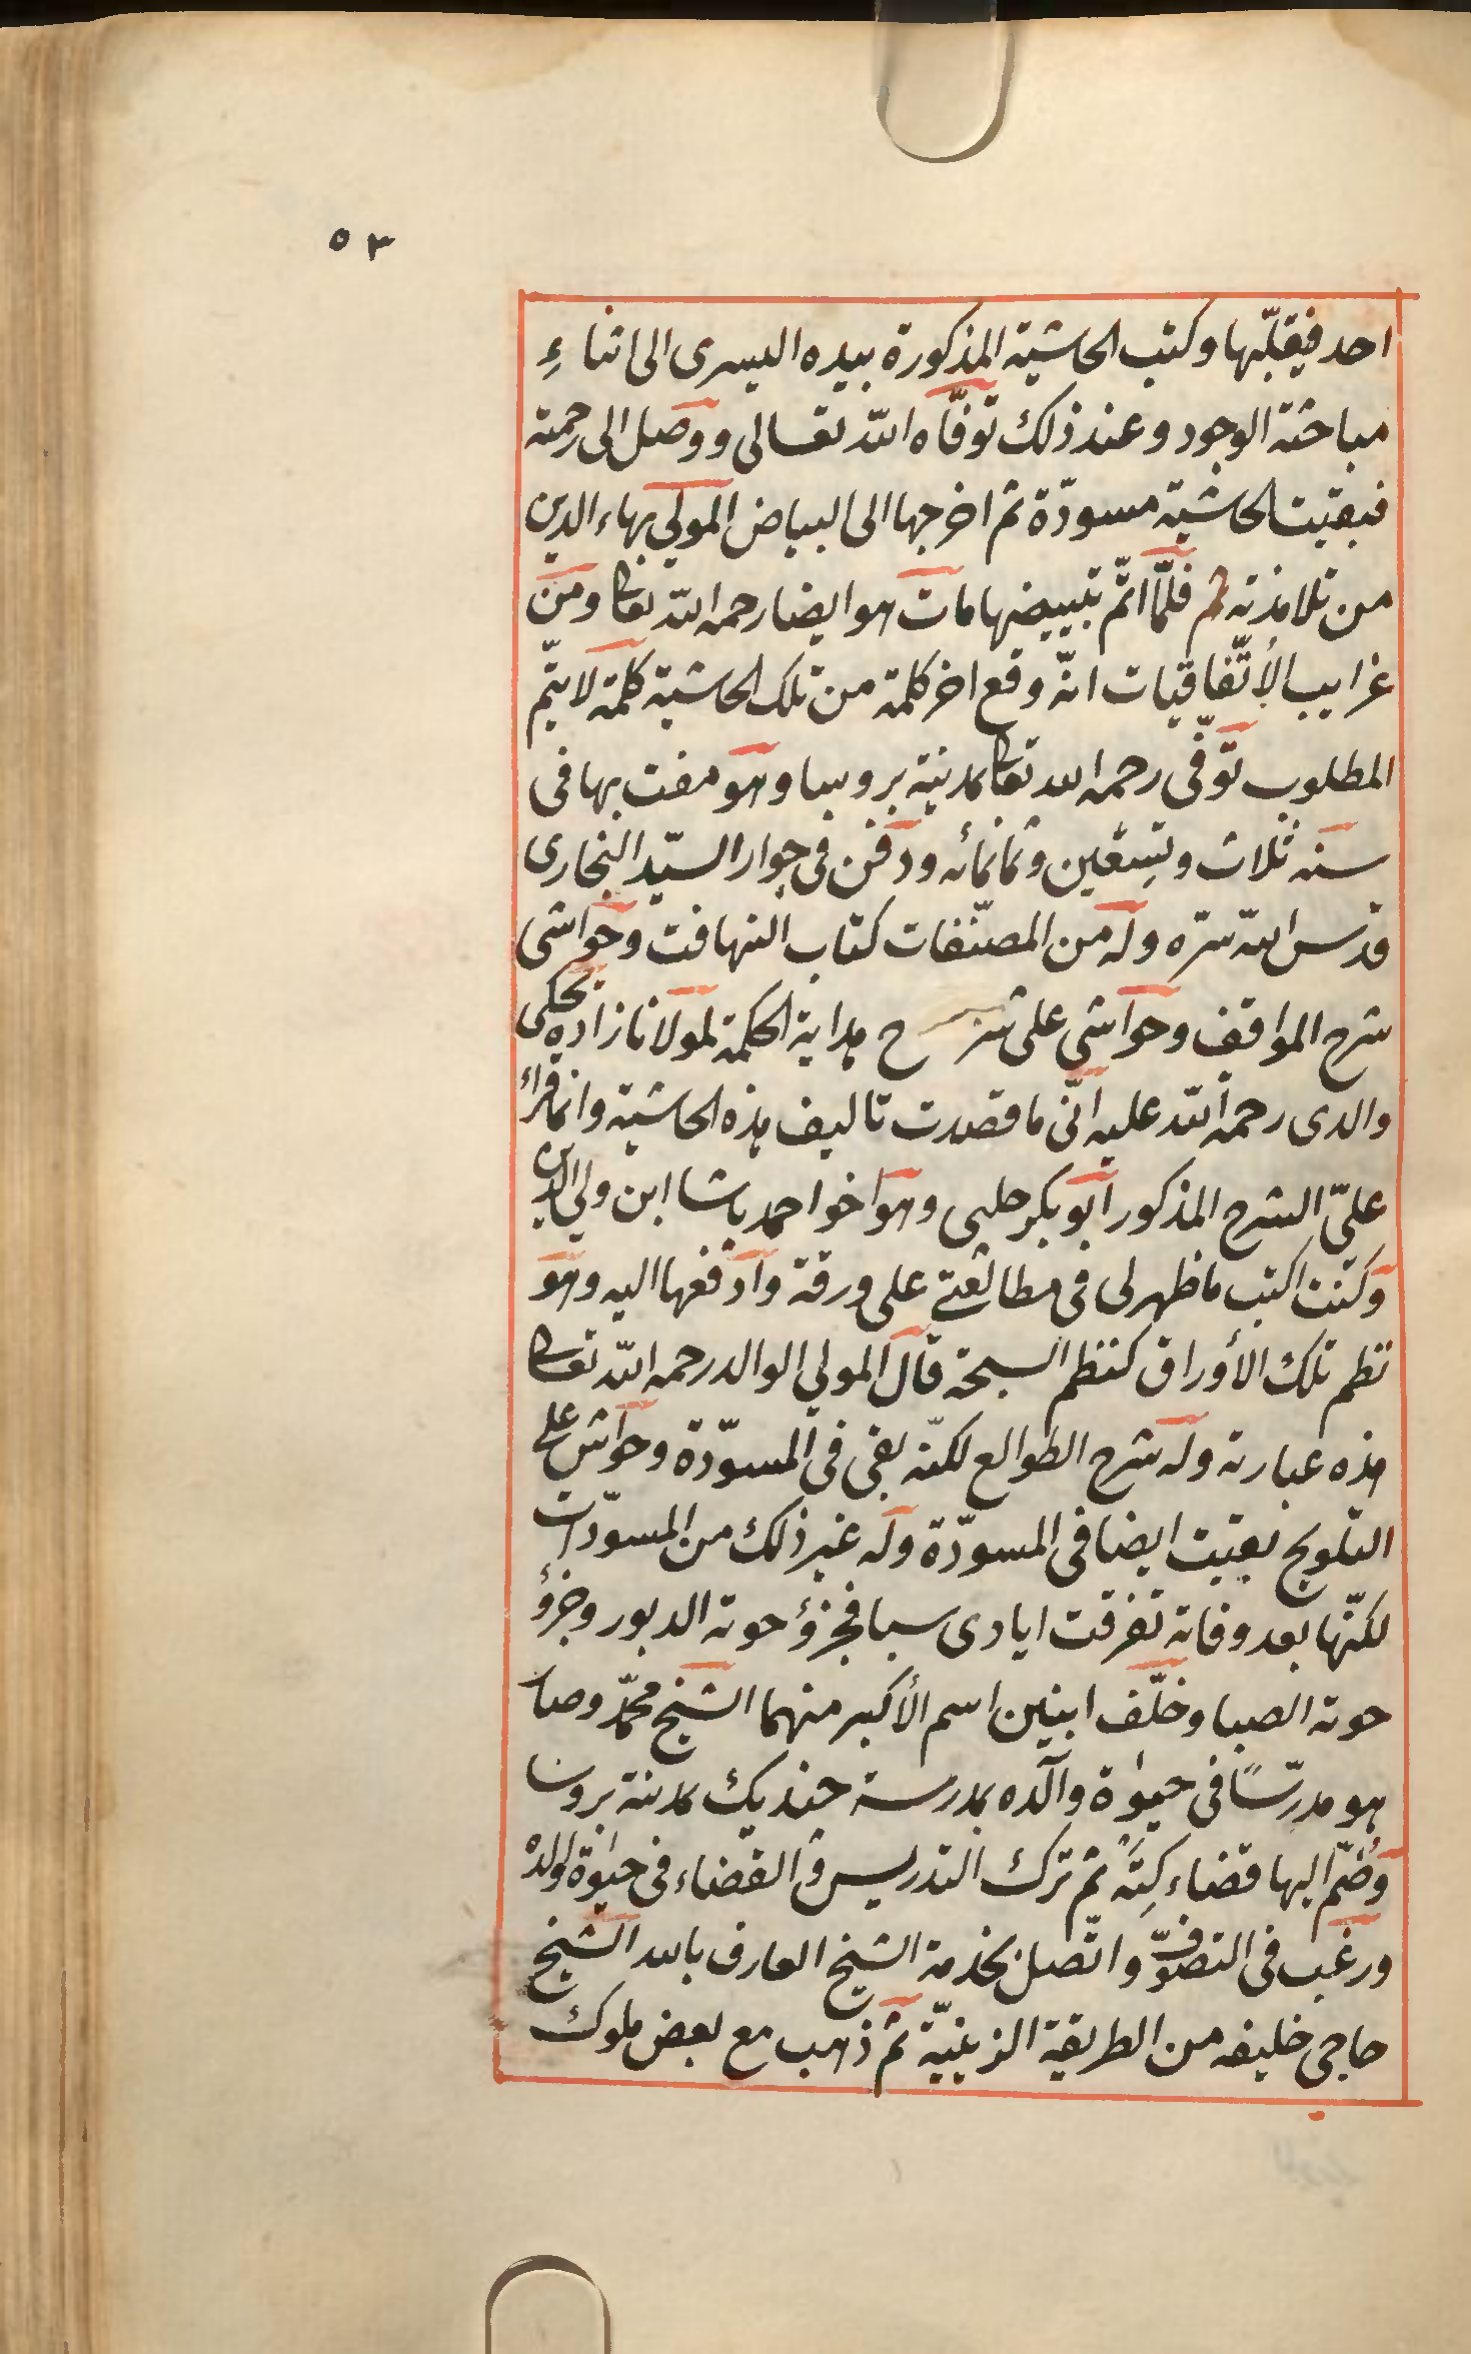 ٥٣
احد فيقلّبها وكتب الحاشية المذكورة بيده اليسرى الى اثناءِ
مباحثة الوجود وعند ذلك توفّاه الله تعالى ووصل الى رحمته
فبقيت الحاشية مسودّة ثم اخرجها الى البياض المولى بهاء الدين
من تلامذته ثم فلمّا اتمّ تبييضها مات هو ايضا رحمه الله تعا ومن
غرايب الأتّفاقيات انّه وقع اخر كلمة من تلك الحاشية كلمة لا يتمّ
المطلوب توّفى رحمه الله تعا بمدينة بروسا وهو مفت بها فى
سنه ثلاث وتسعين وثمانمائه ودفن فى جوار السيّد البخارى
قدس الله سرّه وله من المصنّفات كتاب التهافت وحواشى
شرح المواقف وحواشى على شرح هداية الحكمة لمولانا زاده يحكى
والدى رحمه الله عليه انّى ما قصدت تاليف هذه الحاشية وانما قرأ
علىّ الشرح المذكور ابو بكر حلبى وهو اخو احمد باشا ابن ولى الدين
وكنت اكتب ما ظهر لى فى مطالعتى على ورقة وادفعها اليه وهو
نظم تلك الأوراق كنظم السبحة قال المولى الوالد رحمه الله تعا
هذه عبارته وله شرح الطوالع لكنّه بقى فى المسوّدة وحواش على
التلويح بقيت ايضا فى المسودّة وله غير ذلك من المسودّات
لكنّها بعد وفاته تفرقت ايادى سبا فجزؤ حوته الدبور وجزؤ
حوته الصبا وخلّف ابنين اسم الأكبر منهما الشيخ محمّد وصار
هو مدرّسًا فى حيوة والده بمدرسة جنديك بمدينة بروسا
وضمّ اليها قضاء كِتَه ثم ترك التدريس والقضاء فى حيوة والده
ورغب فى التصوّف واتّصل بخدمة الشيخ العارف بالله الشيخ
حاجى خليفه من الطريقة الزينيّة ثم ذهب مع بعض ملوك